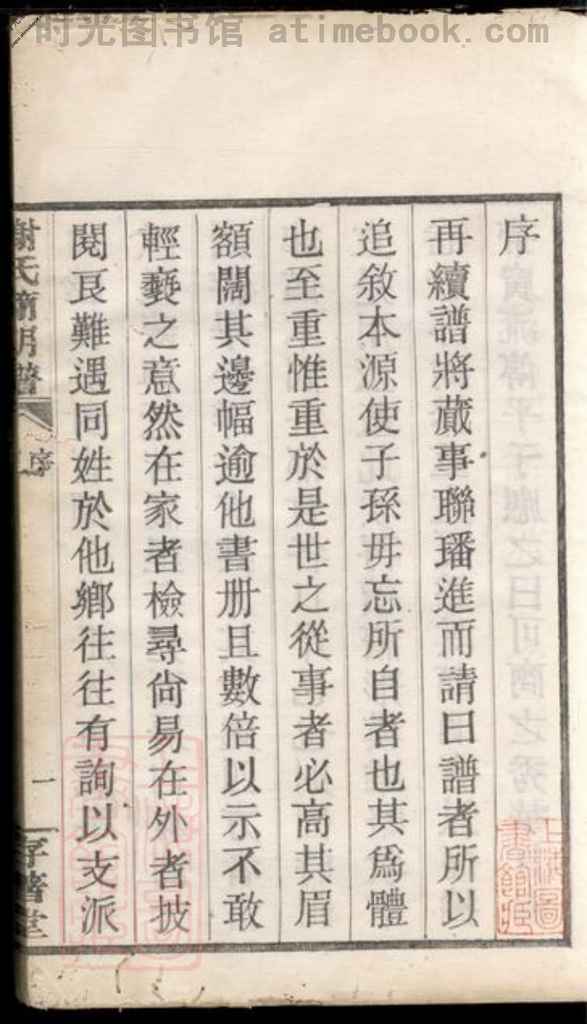 时光图书馆 atimebook.com
序
再續譜將蕆事聯璠進而請曰譜者所以
追敘本源使子孫毋忘所自者也其爲體
也至重惟重於是世之從事者必高其眉
額闊其邊幅逾他書册且數倍以示不敢
輕褻之意然在家者檢尋尙易在外者披
閱艮難遇同姓於他鄉往往有詢以支派
謝氏簡明譜
序
一
上海圖書館藏